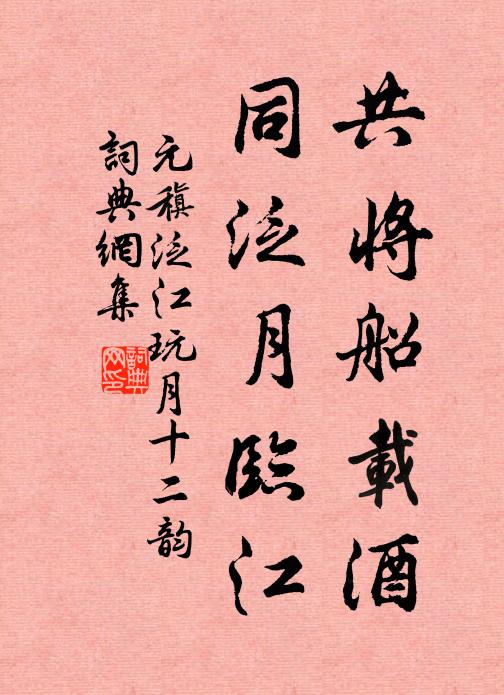 共將船載酒
同泛月臨江
元稹泛江玩月十二韵
詞典網集
詞典網印